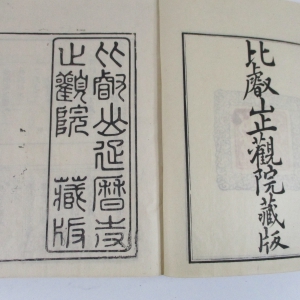 比叡山止觀院藏版
比叡山延曆寺
止觀院 藏版